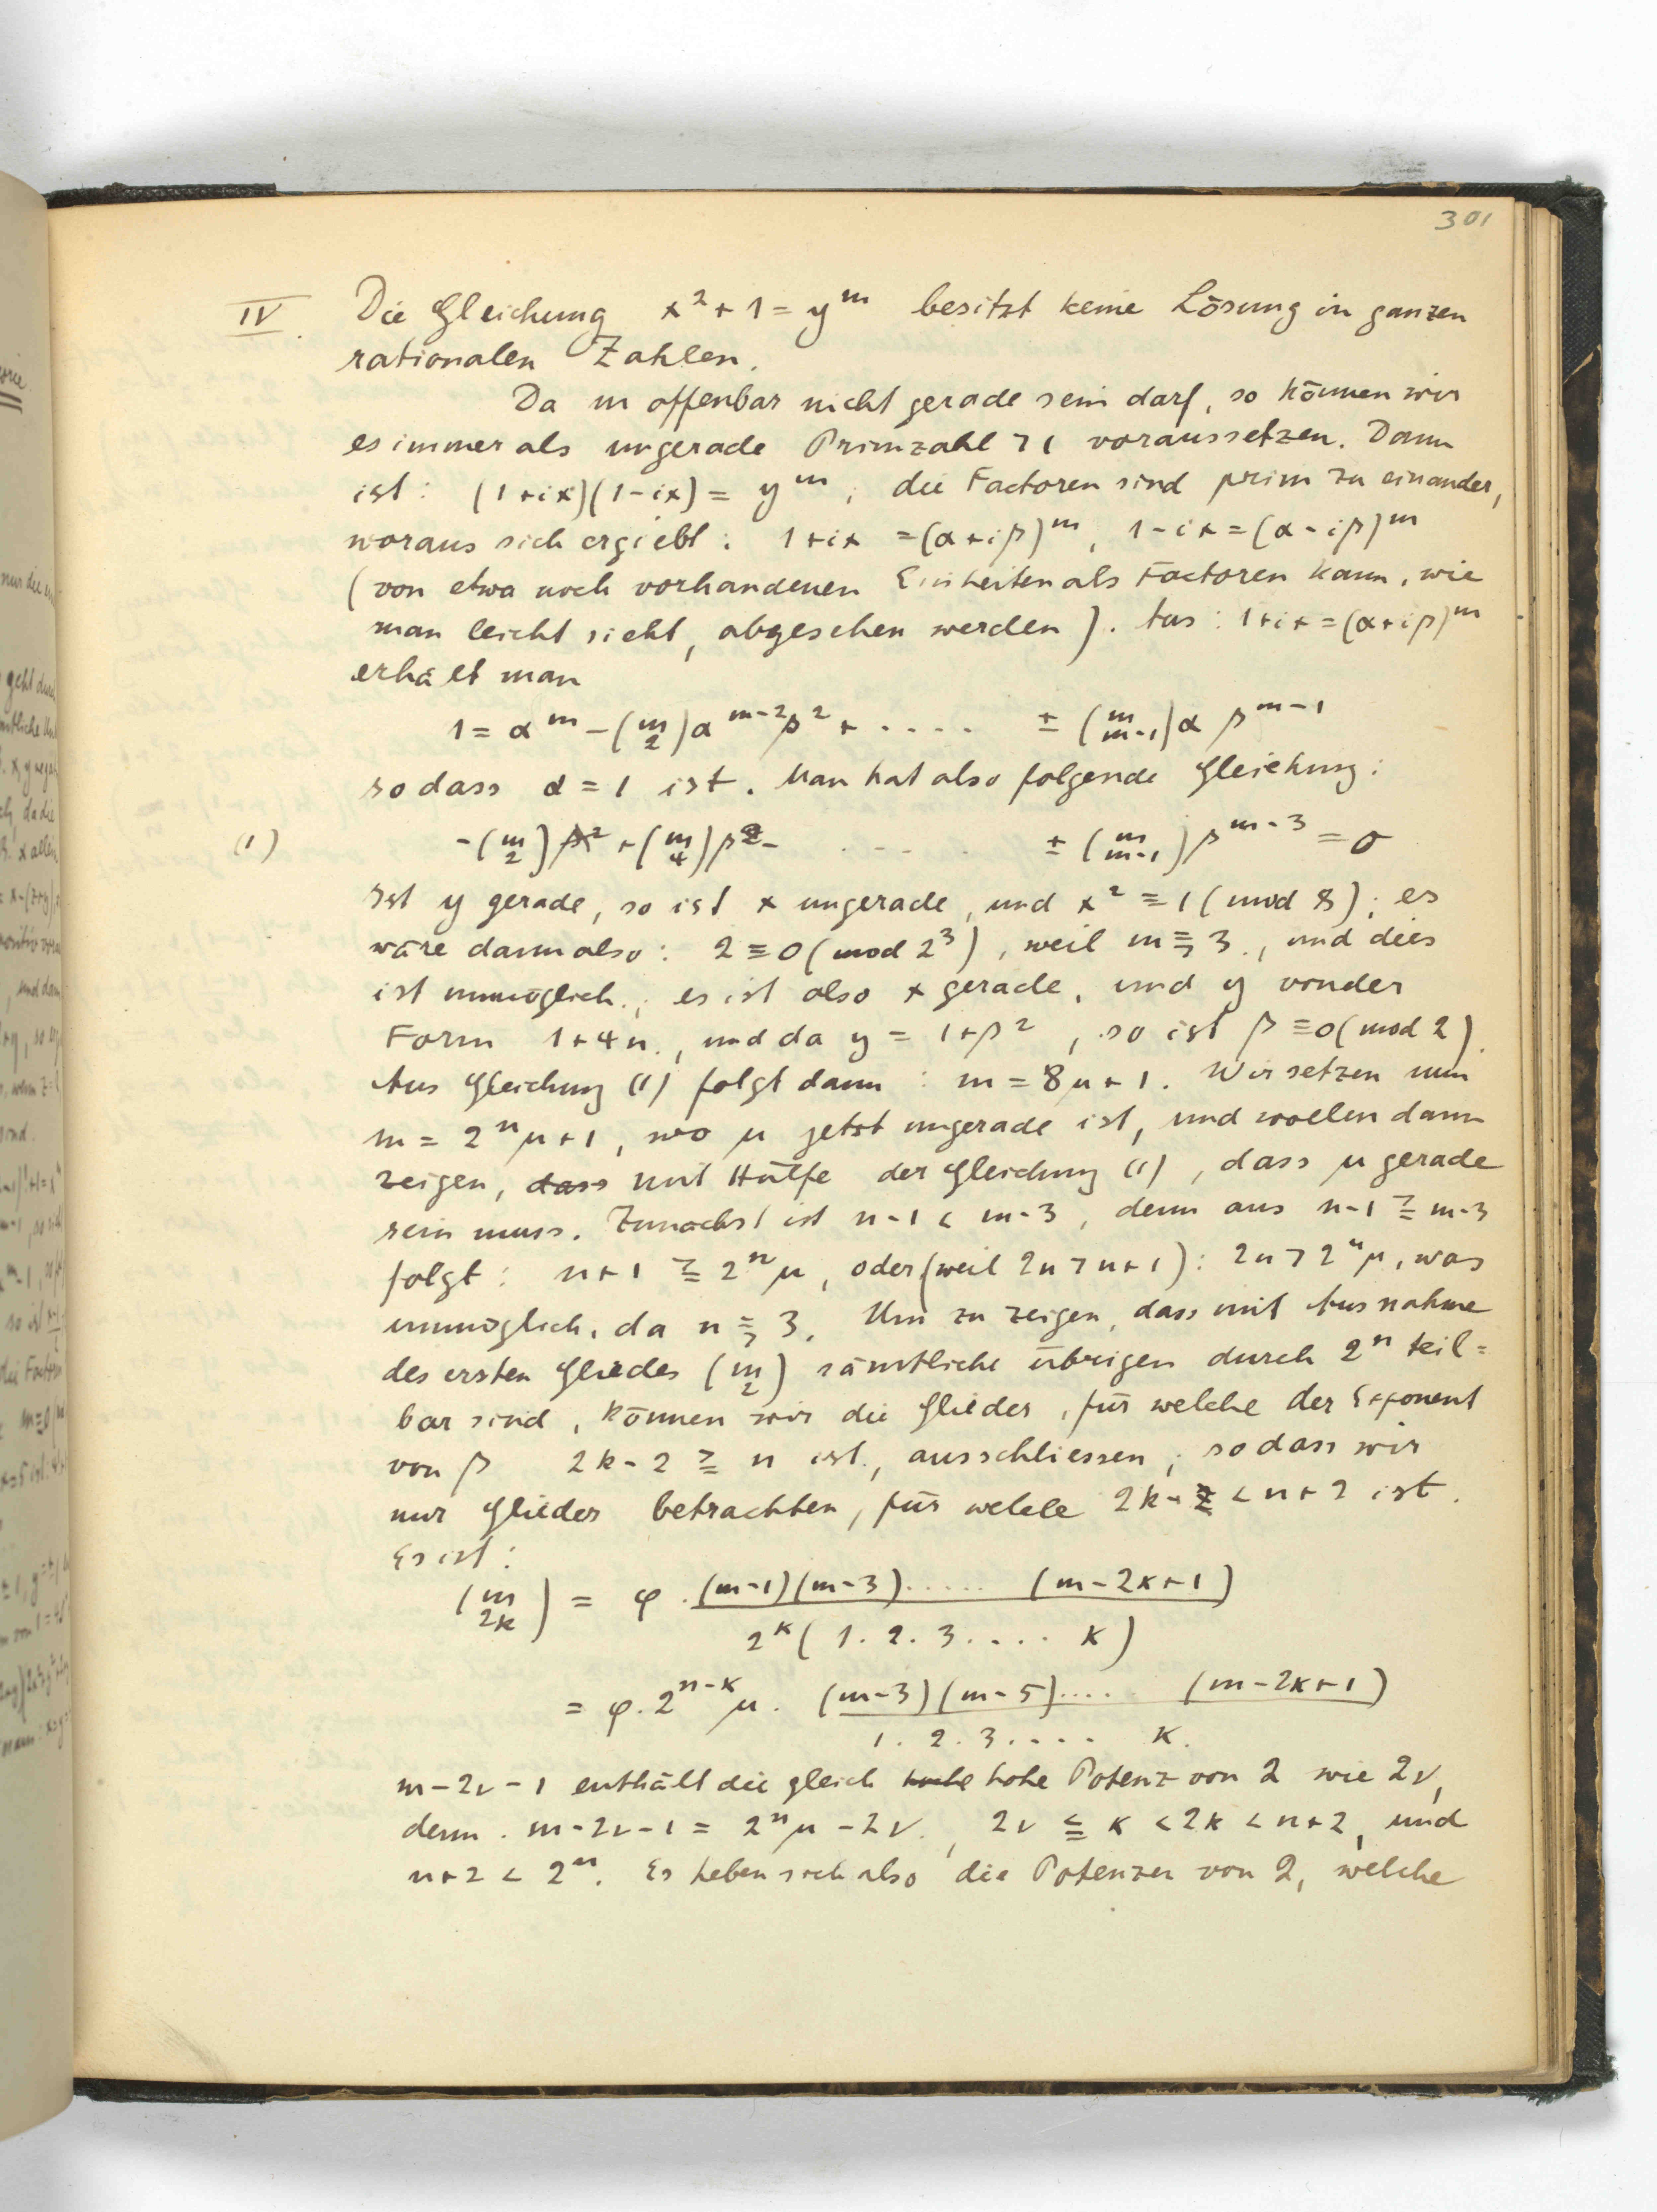 301
IV. Die Gleichung x² + 1 = y^m besitzt keine Lösung in ganzen
rationalen Zahlen.
Da m offenbar nicht gerade sein darf, so können wir
es immer als ungerade Primzahl > 1 voraussetzen. Dann
ist: (1+ix)(1-ix) = y^m; die Factoren sind prim zu einander,
woraus sich ergiebt: 1+ix = (α+iβ)^m, 1-ix = (α-iβ)^m
(von etwa noch vorhandenen Einheiten als Factoren kann, wie
man leicht sieht, abgesehen werden). Aus: 1+ix = (α+iβ)^m
erhält man
1 = α^m - (m über 2) α^{m-2} β² + ..... ± (m über m-1) α β^{m-1}
sodass α = 1 ist. Man hat also folgende Gleichung:
(1) -(m über 2) + (m über 4) β² - ..... ± (m über m-1) β^{m-3} = 0
Ist y gerade, so ist x ungerade, und x² ≡ 1 (mod 8); es
wäre dann also: 2 ≡ 0 (mod 2³), weil m ≧ 3, und dies
ist unmöglich; es ist also x gerade, und y von der
Form 1+4n, und da y = 1+β², so ist β ≡ 0 (mod 2).
Aus Gleichung (1) folgt dann: m = 8μ+1. Wir setzen nun
m = 2^n μ+1, wo μ jetzt ungerade ist, und wollen dann
zeigen, dass mit Hülfe der Gleichung (1), dass μ gerade
sein muss. Zunächst ist n-1 < m-3, denn aus n-1 ≧ m-3
folgt: n+1 ≧ 2^n μ, oder (weil 2n > n+1): 2n > 2^n μ, was
unmöglich, da n ≧ 3. Um zu zeigen, dass mit Ausnahme
des ersten Gliedes (m über 2) sämtliche übrigen durch 2^n teil=
bar sind, können wir die Glieder, für welche der Exponent
von β 2k-2 ≧ n ist, ausschliessen; sodass wir
nur Glieder betrachten, für welche 2k < n+2 ist.
Es ist:
(m über 2k) = φ · (m-1)(m-3)..... (m-2k+1) / 2^k (1.2.3.... k)
= φ · 2^{n-k} μ · (m-3)(m-5).... (m-2k+1) / 1.2.3.... k.
m-2ν-1 enthält die gleich hohe Potenz von 2 wie 2ν,
denn m-2ν-1 = 2^n μ - 2ν, 2ν ≦ k < 2k < n+2, und
n+2 < 2^n. Es heben sich also die Potenzen von 2, welche